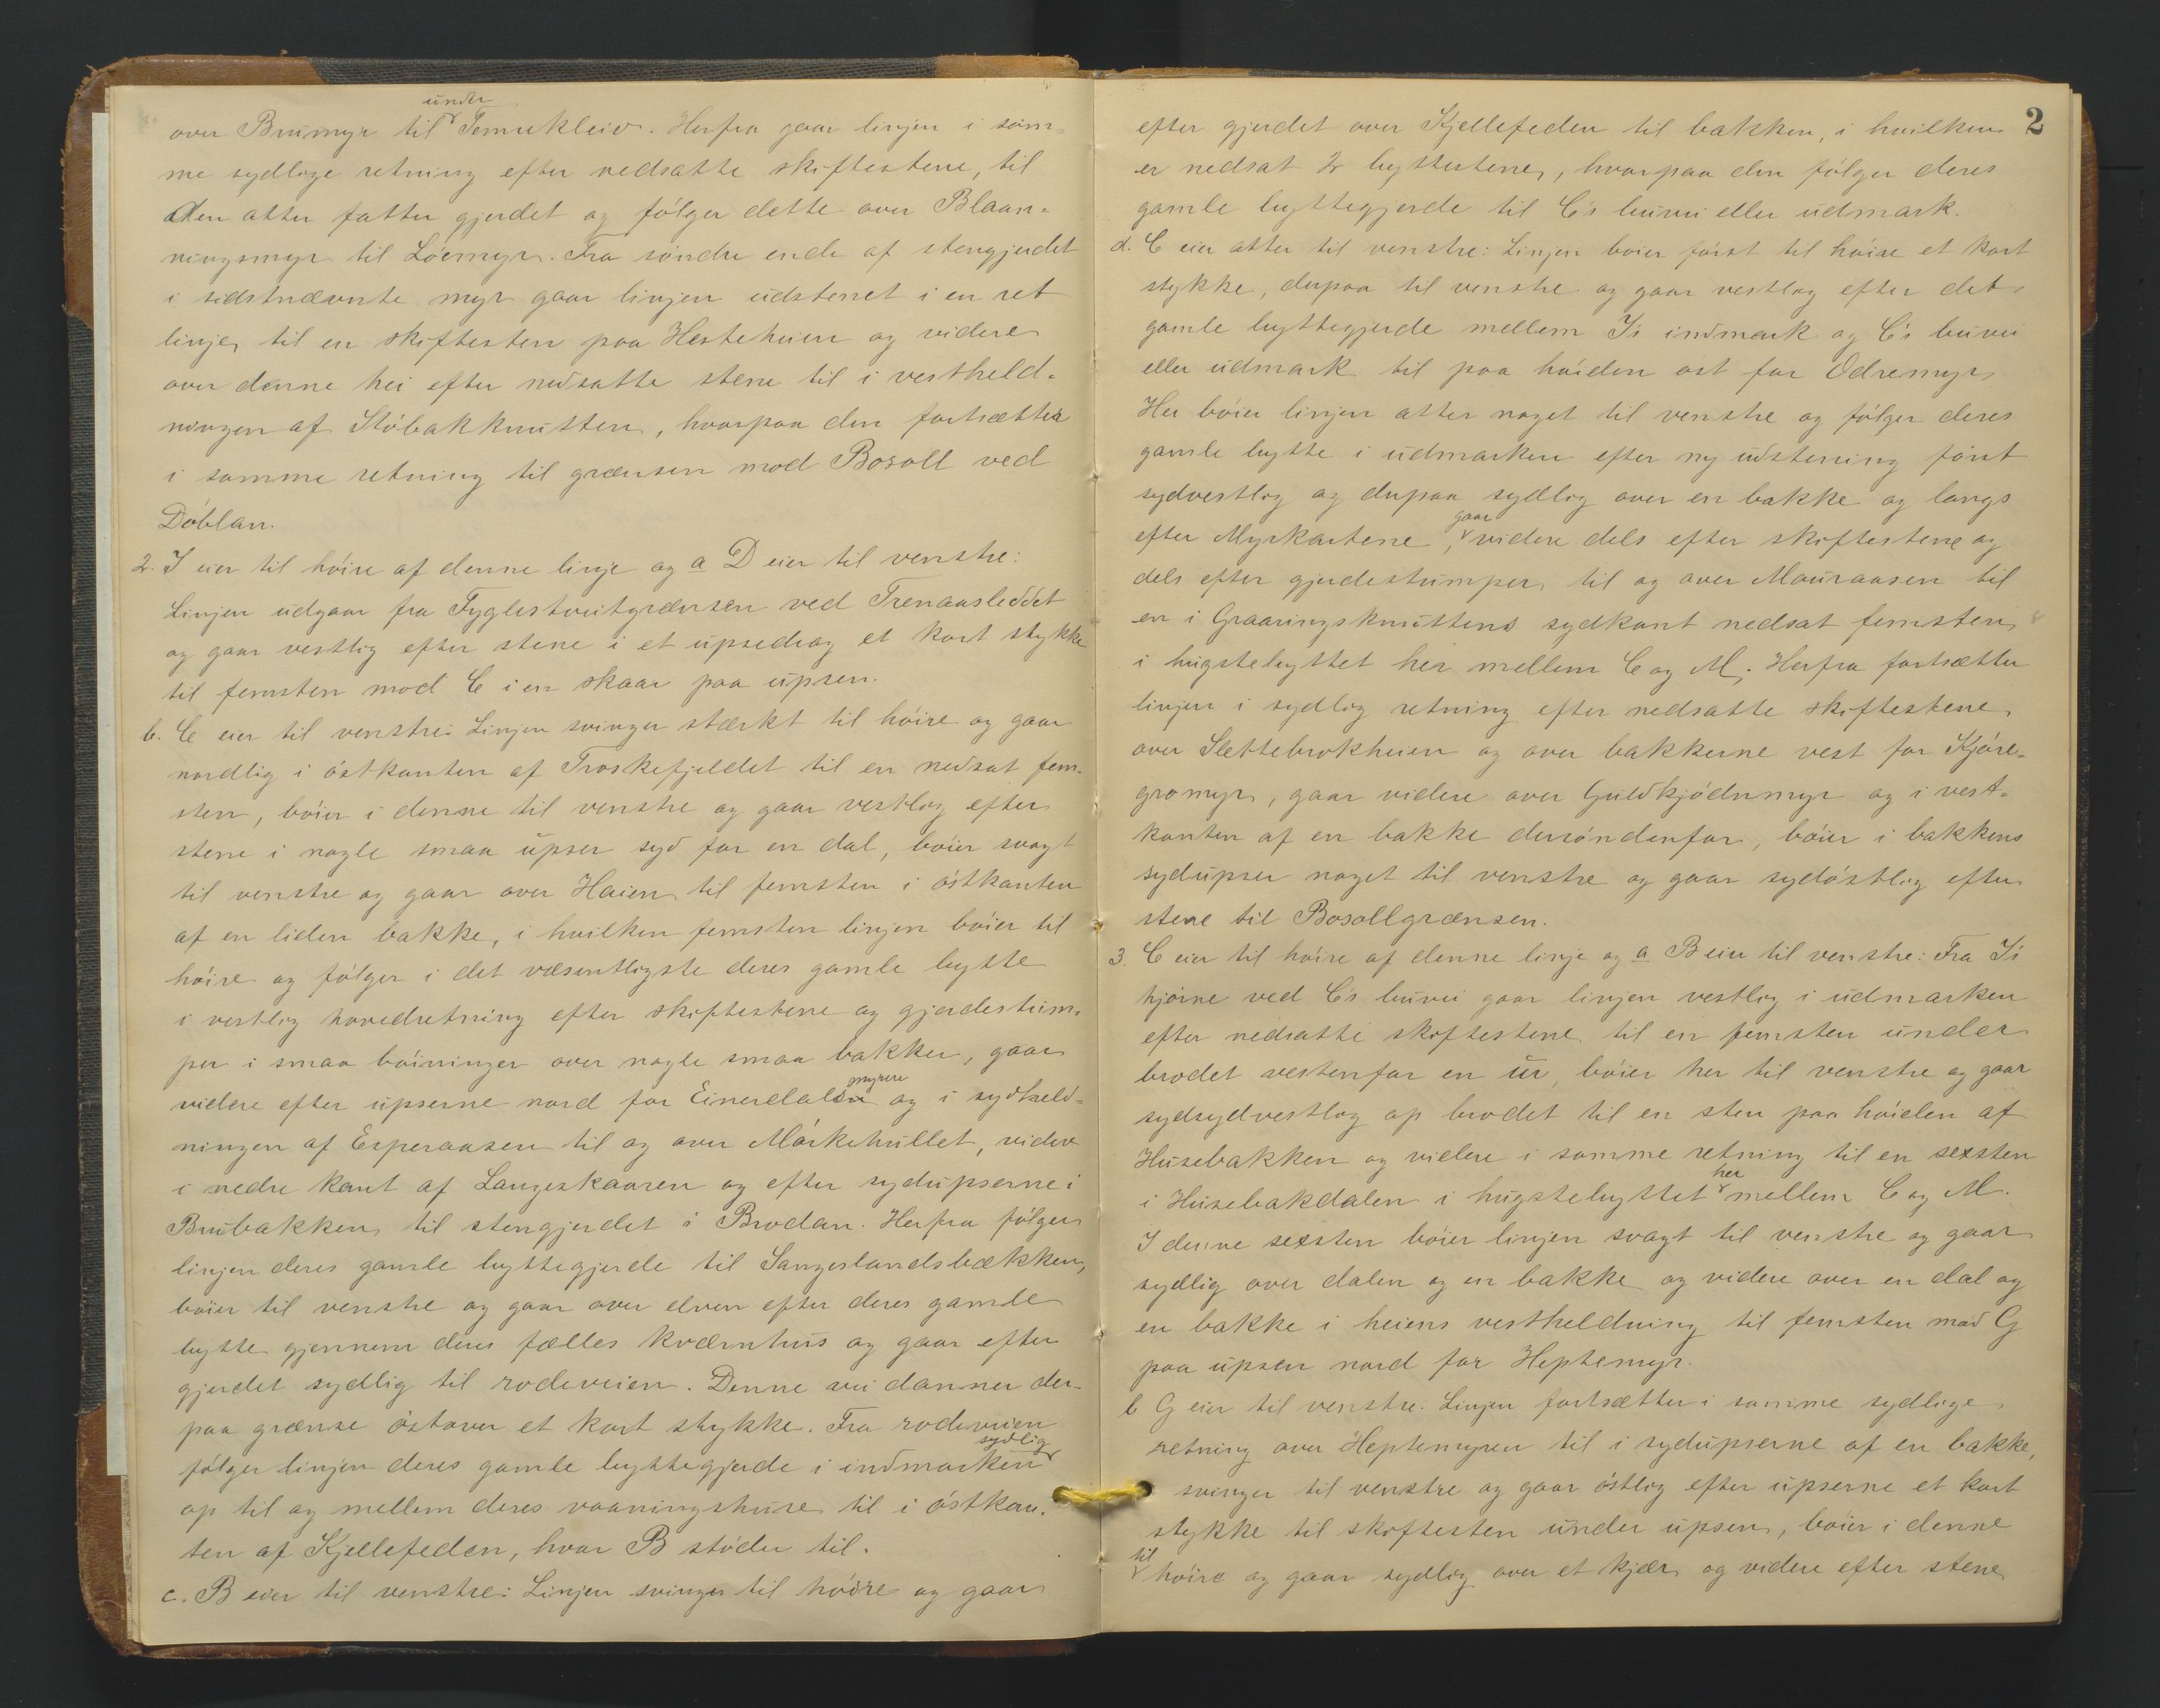 over Brumyr til under Temrekleiv. Herfra gaar linjen i sam-
me sydlige retning efter nedsatte skiftestene, til
den atter fatter gjerdet og følger dette over Blaan-
ningsmyr til Löemyr. Fra söndre ende af stengjerdet
i sidstnævnte myr gaar linjen udstenet i en ret
linje til en skiftesten paa Hesteheien og videre
over denne hei efter nedsatte stene til i vestheld-
ningen af Stöbakknutten, hvorpaa den fortsætter
i samme retning til grænsen mod Bosoll ved
Döblan.
2. I eier til höire af denne linje og a D eier til venstre:
Linjen udgaar fra Fyglestveitgrænsen ved Trenaasleddet
og gaar vestlig efter stene i et upsedrag et kort stykke
til femsten mod C i en skaar paa upsen.
b. C eier til venstre: Linjen svinger stærkt til höire og gaar
nordlig i östkanten af Troskefjeldet til en nedsat fem-
sten, böier i denne til venstre og gaar vestlig efter
stene i nogle smaa upser syd for en dal, böier svagt
til venstre og gaar over Haien til femsten i östkanten
af en liden bakke, i hvilken femsten linjen böier til
höire og fölger i det væsentligste deres gamle bytte
i vestlig hovedretning efter skiftestene og gjerdestum-
per i smaa böininger over nogle smaa bakker, gaar
videre efter upserne nord for Einerdals myrene og i sydheld-
ningen af Esperaasen til og over Mörkehullet, videre
i nedre kant af Langeskaaren og efter sydupserne i
Brubakken til stengjerdet i Brodan. Herfra fölger
linjen deres gamle byttegjerde til Sangeslandsbækken,
böier til venstre og gaar over elven efter deres gamle
bytte gjennem deres fælles kværnhus og gaar efter
gjerdet sydlig til rodeveien. Denne vei danner der-
paa grænse östover et kort stykke. Fra rodeveien
fölger linjen deres gamle byttegjerde i indmarken sydlig
op til og mellem deres vaaningshuse til i östkan-
ten af Kjellefeden, hvor B stöder til.
c. B eier til venstre: Linjen svinger til höire og gaar
2
efter gjerdet over Kjellefeden til bakken, i hvilken
er nedsat 2 byttestene, hvorpaa den fölger deres
gamle byttegjerde til C's buvei eller udmark.
d. C eier atter til venstre: Linjen böier först til höire et kort
stykke, derpaa til venstre og gaar vestlig efter det
gamle byttegjerde mellem I's indmark og C's buvei
eller udmark til paa höiden öst for Odremyr.
Her böier linjen atter noget til venstre og fölger deres
gamle bytte i udmarken efter ny udstening först
sydvestlig og derpaa sydlig over en bakke og langs
efter Myrkartene, gaar videre dels efter skiftestene og
dels efter gjerdestumper til og over Mauraasen til
en i Graaringsknuttens sydkant nedsat femsten
i hugstebyttet her mellem C og M. Herfra fortsætter
linjen i sydlig retning efter nedsatte skiftestene
over Slettebrokheien og over bakkerne vest for Kjöre-
gromyr, gaar videre over Guldkjödnmyr og i vest-
kanten af en bakke dersöndenfor, böier i bakkens
sydupser noget til venstre og gaar sydöstlig efter
stene til Bosollgrænsen.
3. C eier til höire af denne linje og a B eier til venstre: Fra I's
hjörne ved C's buvei gaar linjen vestlig i udmarken
efter nedsatte skiftestene til en femsten under
brodet vestenfor en ur, böier her til venstre og gaar
sydsydvestlig op brodet til en sten paa höiden af
Husebakken og videre i samme retning til en sexsten
i Husebakdalen i hugstebyttet her mellem C og M.
I denne sexsten böier linjen svagt til venstre og gaar
sydlig over dalen og en bakke og videre over en dal og
en bakke i heiens vestheldning til femsten mod G
paa upsen nord for Heptemyr.
b G eier til venstre: Linjen fortsætter i samme sydlige
retning over Heptemyren til i sydupserne af en bakke,
svinger til venstre og gaar östlig efter upserne et kort
stykke til skiftesten under upsen, böier i denne
til höire og gaar sydlig over et kjær og videre efter stene